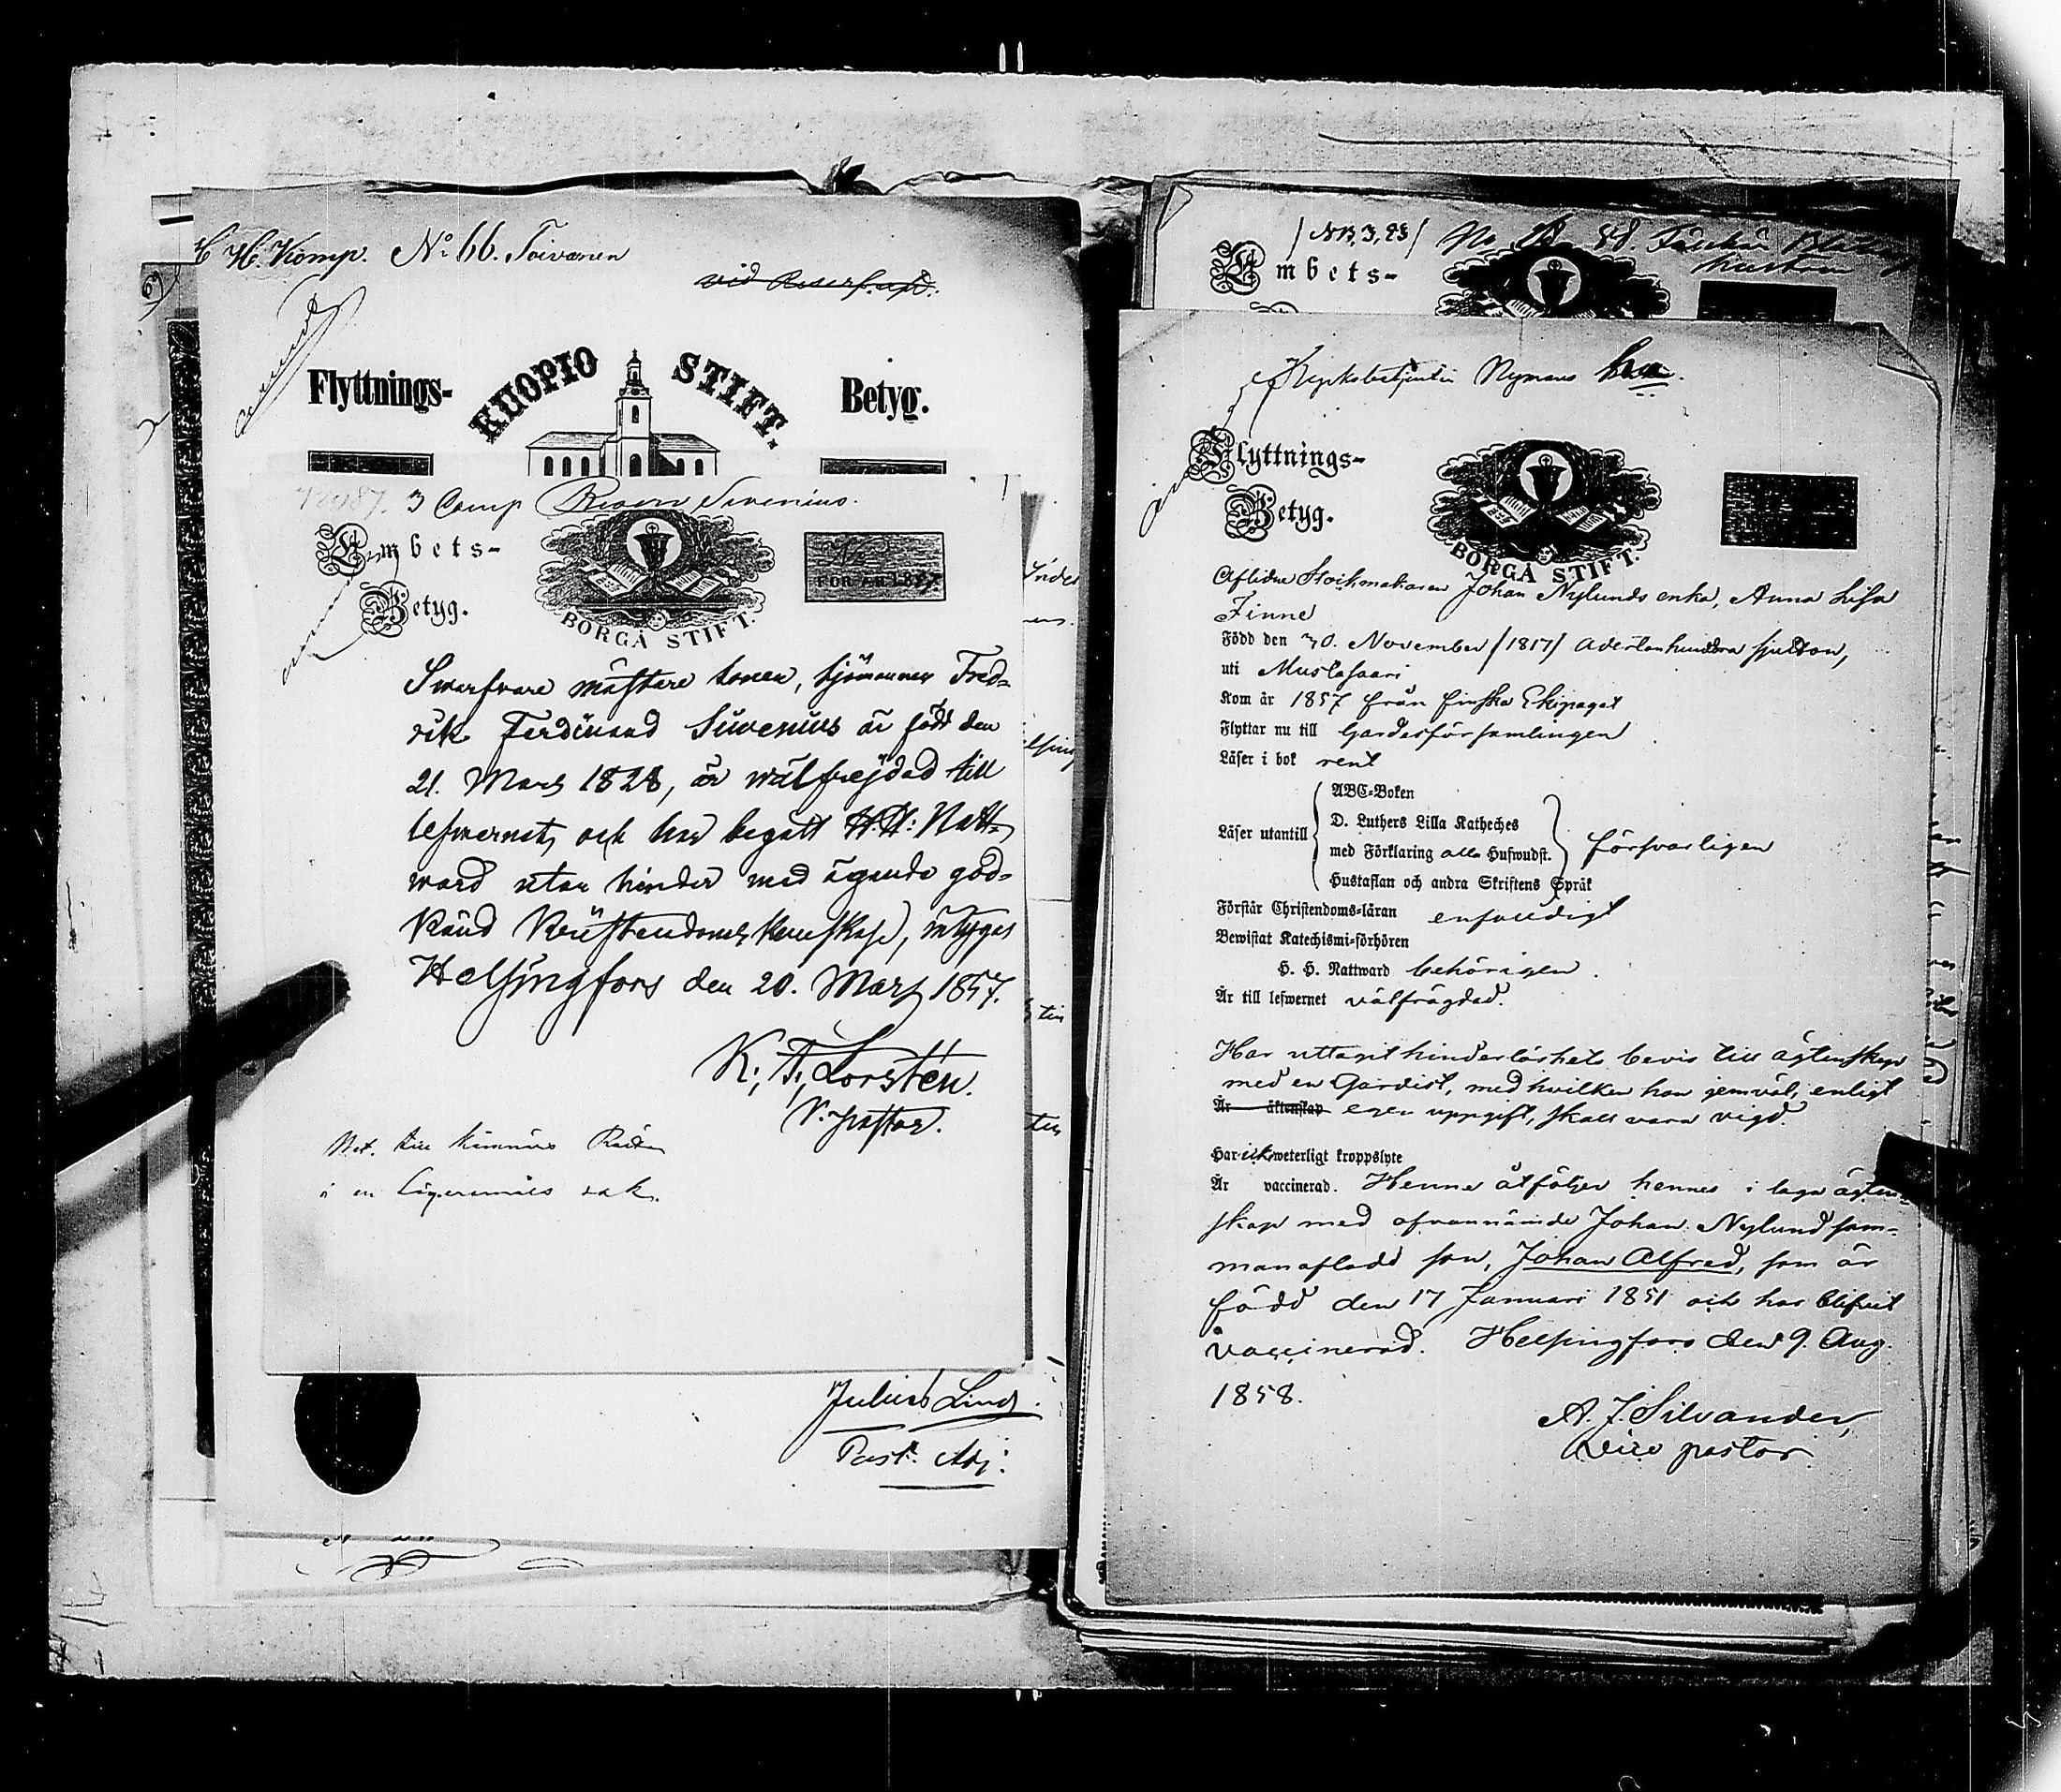 H. Komp. No 66. Toivanen
vid Reserf. afd.
Flyttnings- KUOPIO STIFT. Betyg.
3 Comp Sirenius.
Embets-
Betyg.
BORGÅ STIFT.
FÖR ÅR 1857.
Swarfvare mästare sonen, sjömannen Fred-
rik Ferdinand Siwenius är född den
21. Mars 1828, är wälfrejdad till
lefwernet, och har begått H.H. Natt-
ward utan hinder med ägande god-
känd Kristendoms kunskap, intygas
Helsingfors den 20. Mars 1857.
K. F. Lorstén.
V. pastor.
Not. till Kämnärs Rätten
i en lägersmåls sak.
Julius Lind.
Past. Adj.
/NB, 3, 28/ No 48.
Embets-
Nymans
Flyttnings-
Betyg.
BORGÅ STIFT.
Aflidne Stockmakaren Johan Nylunds enka, Anna Lisa
Finne
Född den 30. November /1817/ adertonhundra sjutton,
uti Mustasaari
Kom år 1857 från finska Ekipaget
Flyttar nu till Gardesförsamlingen
Läser i bok rent
Läser utantill
ABC-Boken
D. Luthers Lilla Katheches
med Förklaring alla Hufwudst.
Hustaflan och andra Skriftens Språk
försvarligen
Förstår Christendoms-läran enfaldigt
Bewistat Katechismi-förhören
H. H. Nattward behörigen.
Är till lefwernet välfrägdad.
Har uttagit hinderlöshets bevis till ägtenskap
med en Gardist, med hvilken hon jemväl, enligt
Är äktenskap egen uppgift, skall vara vigd.
Har ick weterligt kroppslyte
Är vaccinerad. Henne åtföljer hennes i laga ägten-
skap med ofvannämde Johan Nylund sam-
manaflade son, Johan Alfred, som är
född den 17 Januari 1851 och har blifvit
vaccinerad. Helsingfors den 9. Aug.
1858.
A. J. Silvander,
vice pastor.